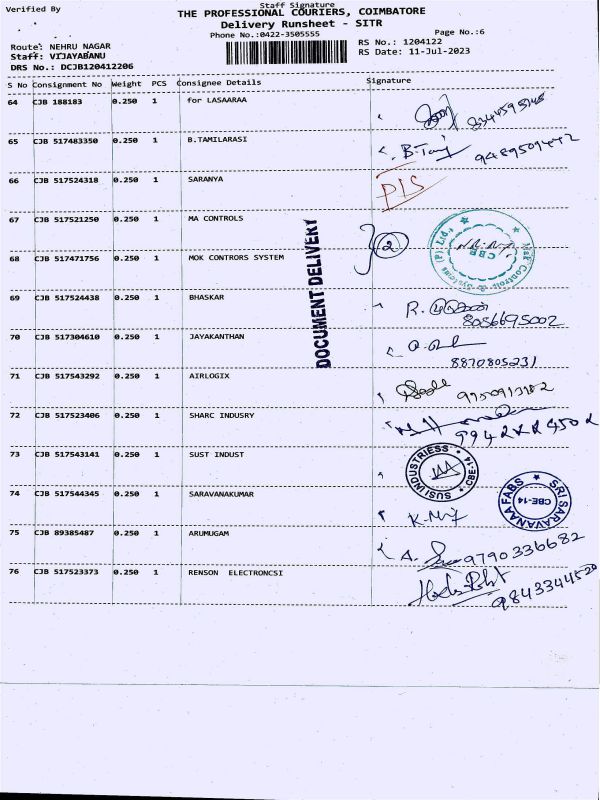 Verified By
Staff Signature
THE PROFESSIONAL COURIERS, COIMBATORE
Delivery Runsheet - SITR
Phone No.:0422-3505555
Page No.:6
Route: NEHRU NAGAR
RS No.: 1204122
Staff: VIJAYABANU
RS Date: 11-Jul-2023
DRS No.: DCJB120412206
S No Consignment No Weight PCS Consignee Details Signature
64 CJB 188183 0.250 1 for LASAARAA
8344595145
65 CJB 517483350 0.250 1 B.TAMILARASI
B.Tamil 9489509472
66 CJB 517524318 0.250 1 SARANYA
DIS
67 CJB 517521250 0.250 1 MA CONTROLS
2
68 CJB 517471756 0.250 1 MOK CONTRORS SYSTEM
Mak Controls & Systems (P) Ltd.,
CBE
DOCUMENT DELIVERY
69 CJB 517524438 0.250 1 BHASKAR
R.
8056695002
70 CJB 517304610 0.250 1 JAYAKANTHAN
8870805231
71 CJB 517543292 0.250 1 AIRLOGIX
9750913182
72 CJB 517523406 0.250 1 SHARC INDUSRY
73 CJB 517543141 0.250 1 SUST INDUST
SUSI INDUSTRIESS
CBE-14
74 CJB 517544345 0.250 1 SARAVANAKUMAR
SRI SARAVANAA FABS
CBE-14
75 CJB 89385487 0.250 1 ARUMUGAM
A. 9790336682
76 CJB 517523373 0.250 1 RENSON ELECTRONCSI
9843344520